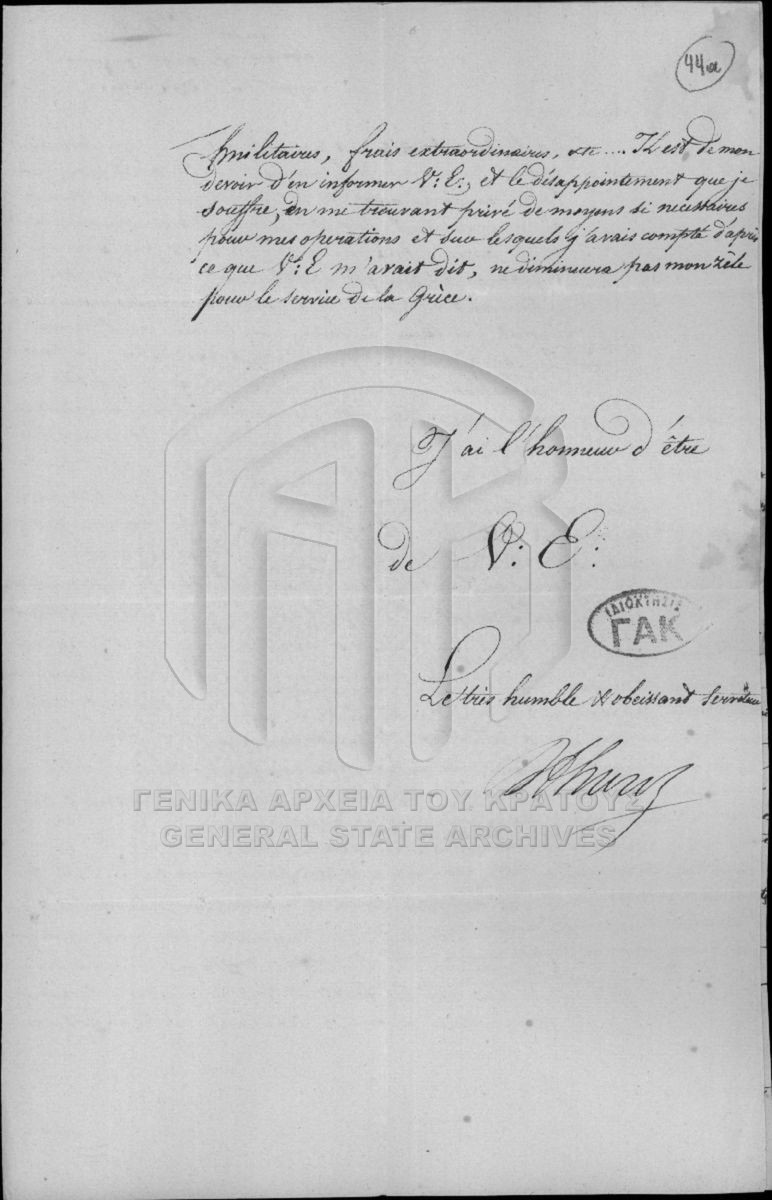 44a
militaires, frais extraordinaires, &c .... Il est de mon
devoir d'en informer V: E:, et le désappointement que je
souffre, en me trouvant privé de moyens si nécessaires
pour mes operations et sur lesquels j'avais compté d'après
ce que V: E m'avait dit, ne diminuera pas mon zèle
pour le service de la Grèce.
J'ai l'honneur d'être
de V: E:
ΙΔΙΟΚΤΗΣΙΣ
ΓΑΚ
Le très humble & obeissant serviteur
ΓΕΝΙΚΑ ΑΡΧΕΙΑ ΤΟΥ ΚΡΑΤΟΥΣ
GENERAL STATE ARCHIVES